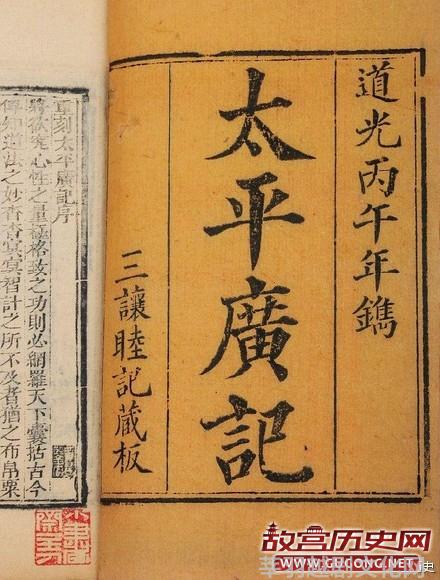 道光丙午年鐫
太平廣記
三讓睦記藏板
重刻太平廣記序
將欲究心性之量極格致之功則必網羅天下囊括古今
俾知道法之妙杳杳冥冥智計之所不及者猶之布帛粟
故宫历史网